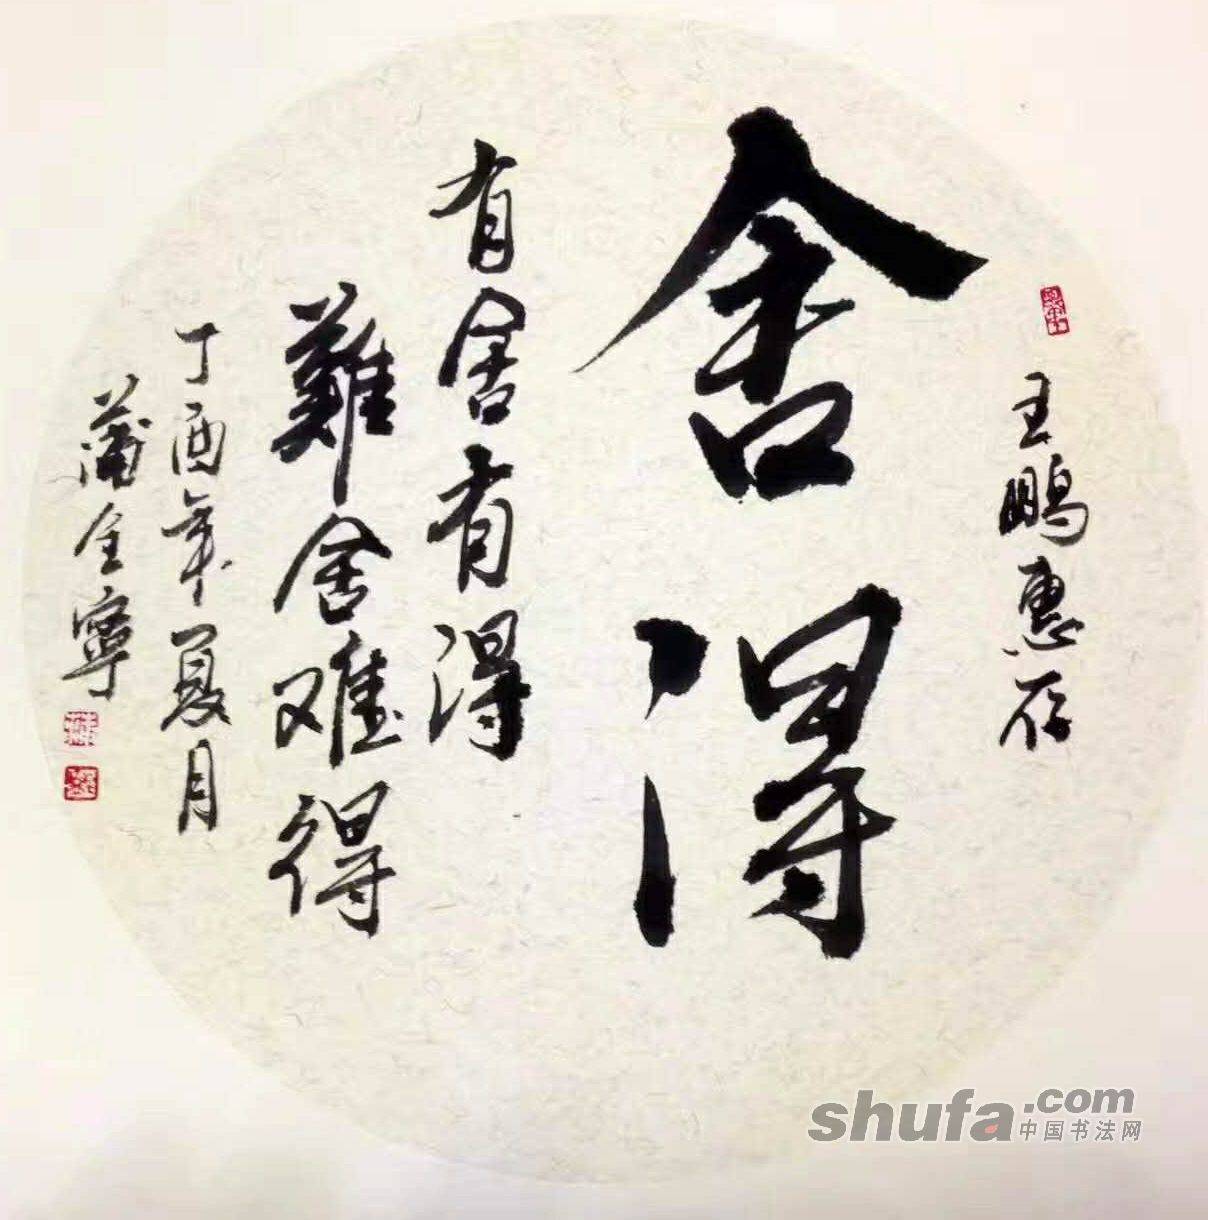 王鹏惠存
舍得
有舍有得
難舍难得
丁酉年夏月
蒲全寧
shufa.com
中国书法网